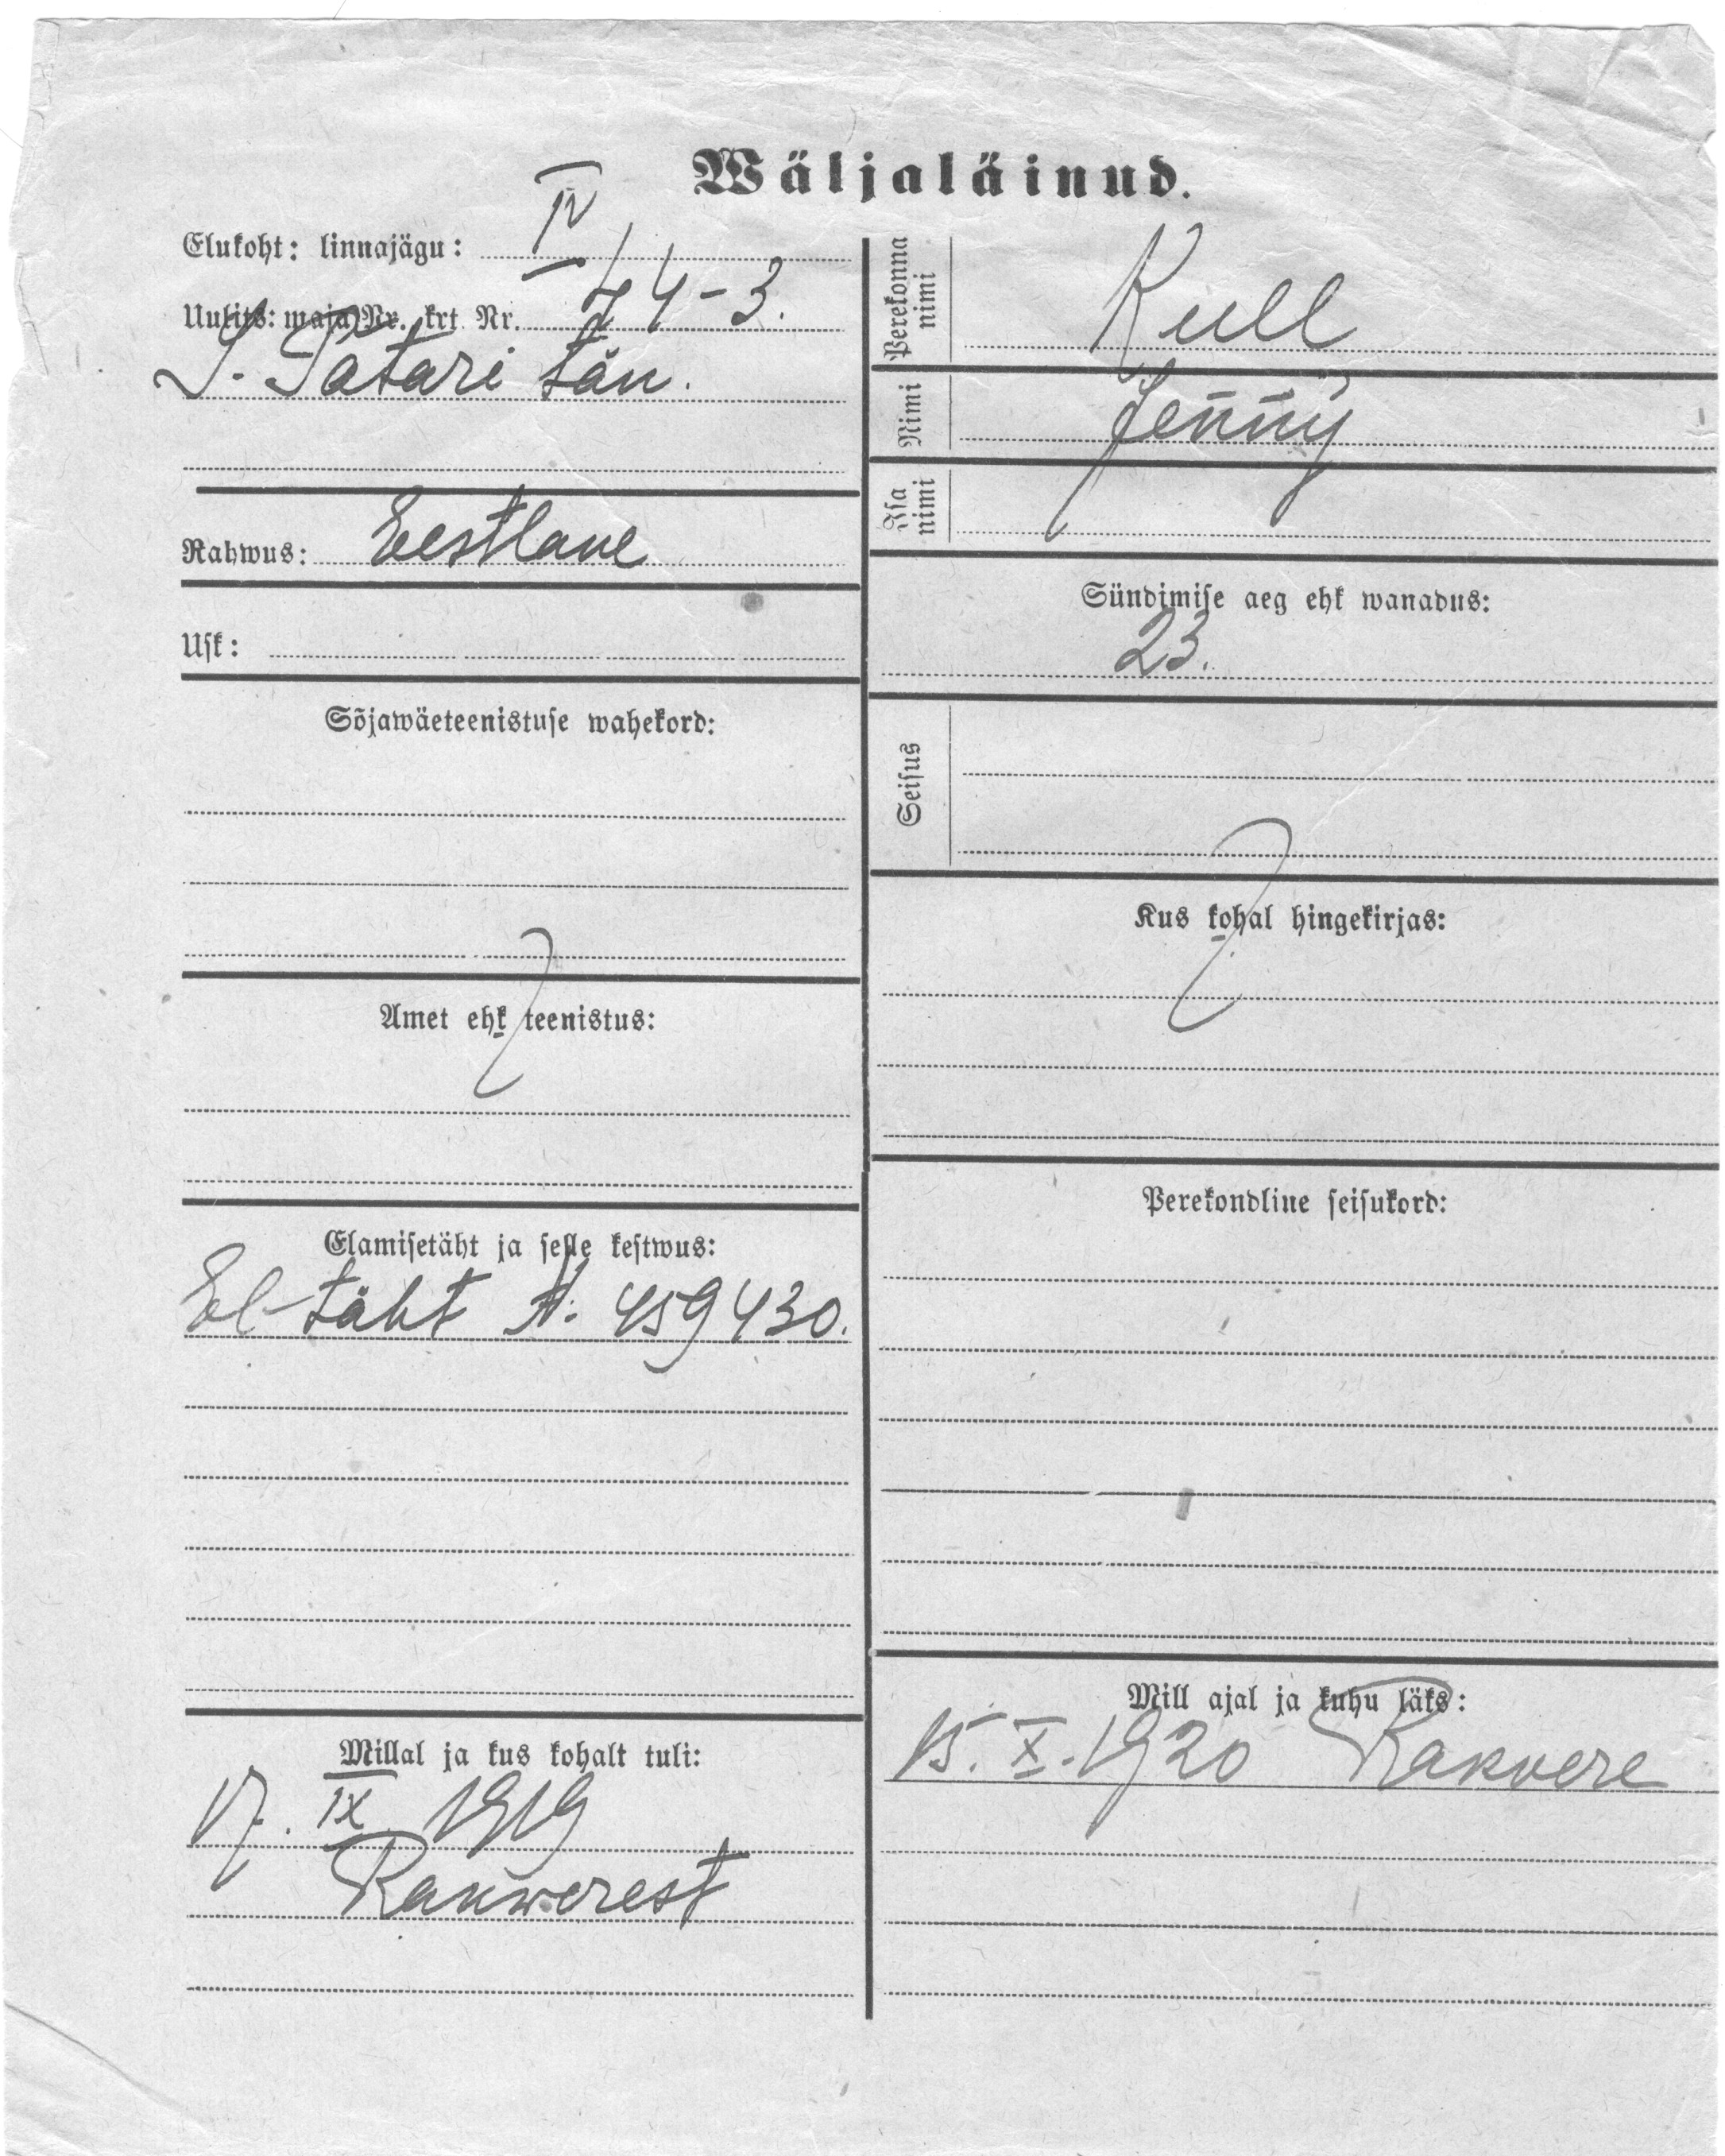 Wäljaläinud.
Elukoht: linnajägu: IV
Uulits: maja Nr. krt Nr. 44-3.
S. Tatari tän.
Rahwus: Eestlane
Usk:
Sõjawäeteenistuse wahekord:
Amet ehk teenistus:
Elamisetäht ja selle kestwus:
El-täht A. 459430.
Millal ja kus kohalt tuli:
17. IX 1919
Rakwerest
Perekonna
nimi
Kull
Nimi
Jenny
Isa
nimi
Sündimise aeg ehk wanadus:
23.
Seisus
Kus kohal hingekirjas:
Perekondline seisukord:
Mill ajal ja kuhu läks:
15. X. 1920 Rakvere